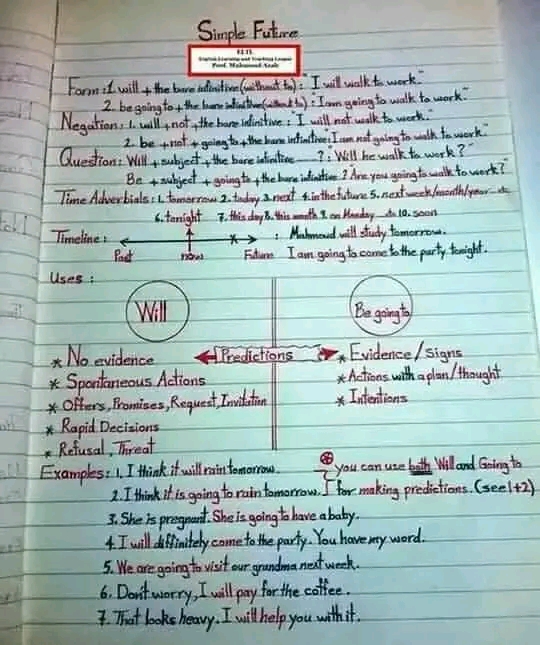 Simple Future
ELTL
English Learning and Teaching League
Prof. Mahmoud Azab
Form: 1. will + the bare infinitive (without to): "I will walk to work."
2. be going to + the bare infinitive (without to): I am going to walk to work."
Negation: 1. will + not + the bare infinitive: "I will not walk to work."
2. be + not + going to + the bare infinitive: "I am not going to walk to work."
Question: Will + subject + the bare infinitive ......? : Will he walk to work?"
Be + subject + going to + the bare infinitive ? Are you going to walk to work?"
Time Adverbials: 1. tomorrow 2. today 3. next 4. in the future 5. next week/month/year... etc
6. tonight 7. this day 8. this month 9. on Monday ...etc 10. soon
Timeline: : Mahmoud will study tomorrow.
Past now Future I am going to come to the party tonight.
Uses:
Will Be going to
* No evidence Predictions * Evidence/Signs
* Spontaneous Actions * Actions with a plan/thought
* Offers, Promises, Request, Invitation * Intentions
* Rapid Decisions
* Refusal, Threat
Examples: 1. I think it will rain tomorrow. you can use both Will and Going to
2. I think it is going to rain tomorrow. for making predictions. (see 1+2)
3. She is pregnant. She is going to have a baby.
4. I will diffinitely come to the party. You have my word.
5. We are going to visit our grandma next week.
6. Don't worry, I will pay for the coffee.
7. That looks heavy. I will help you with it.